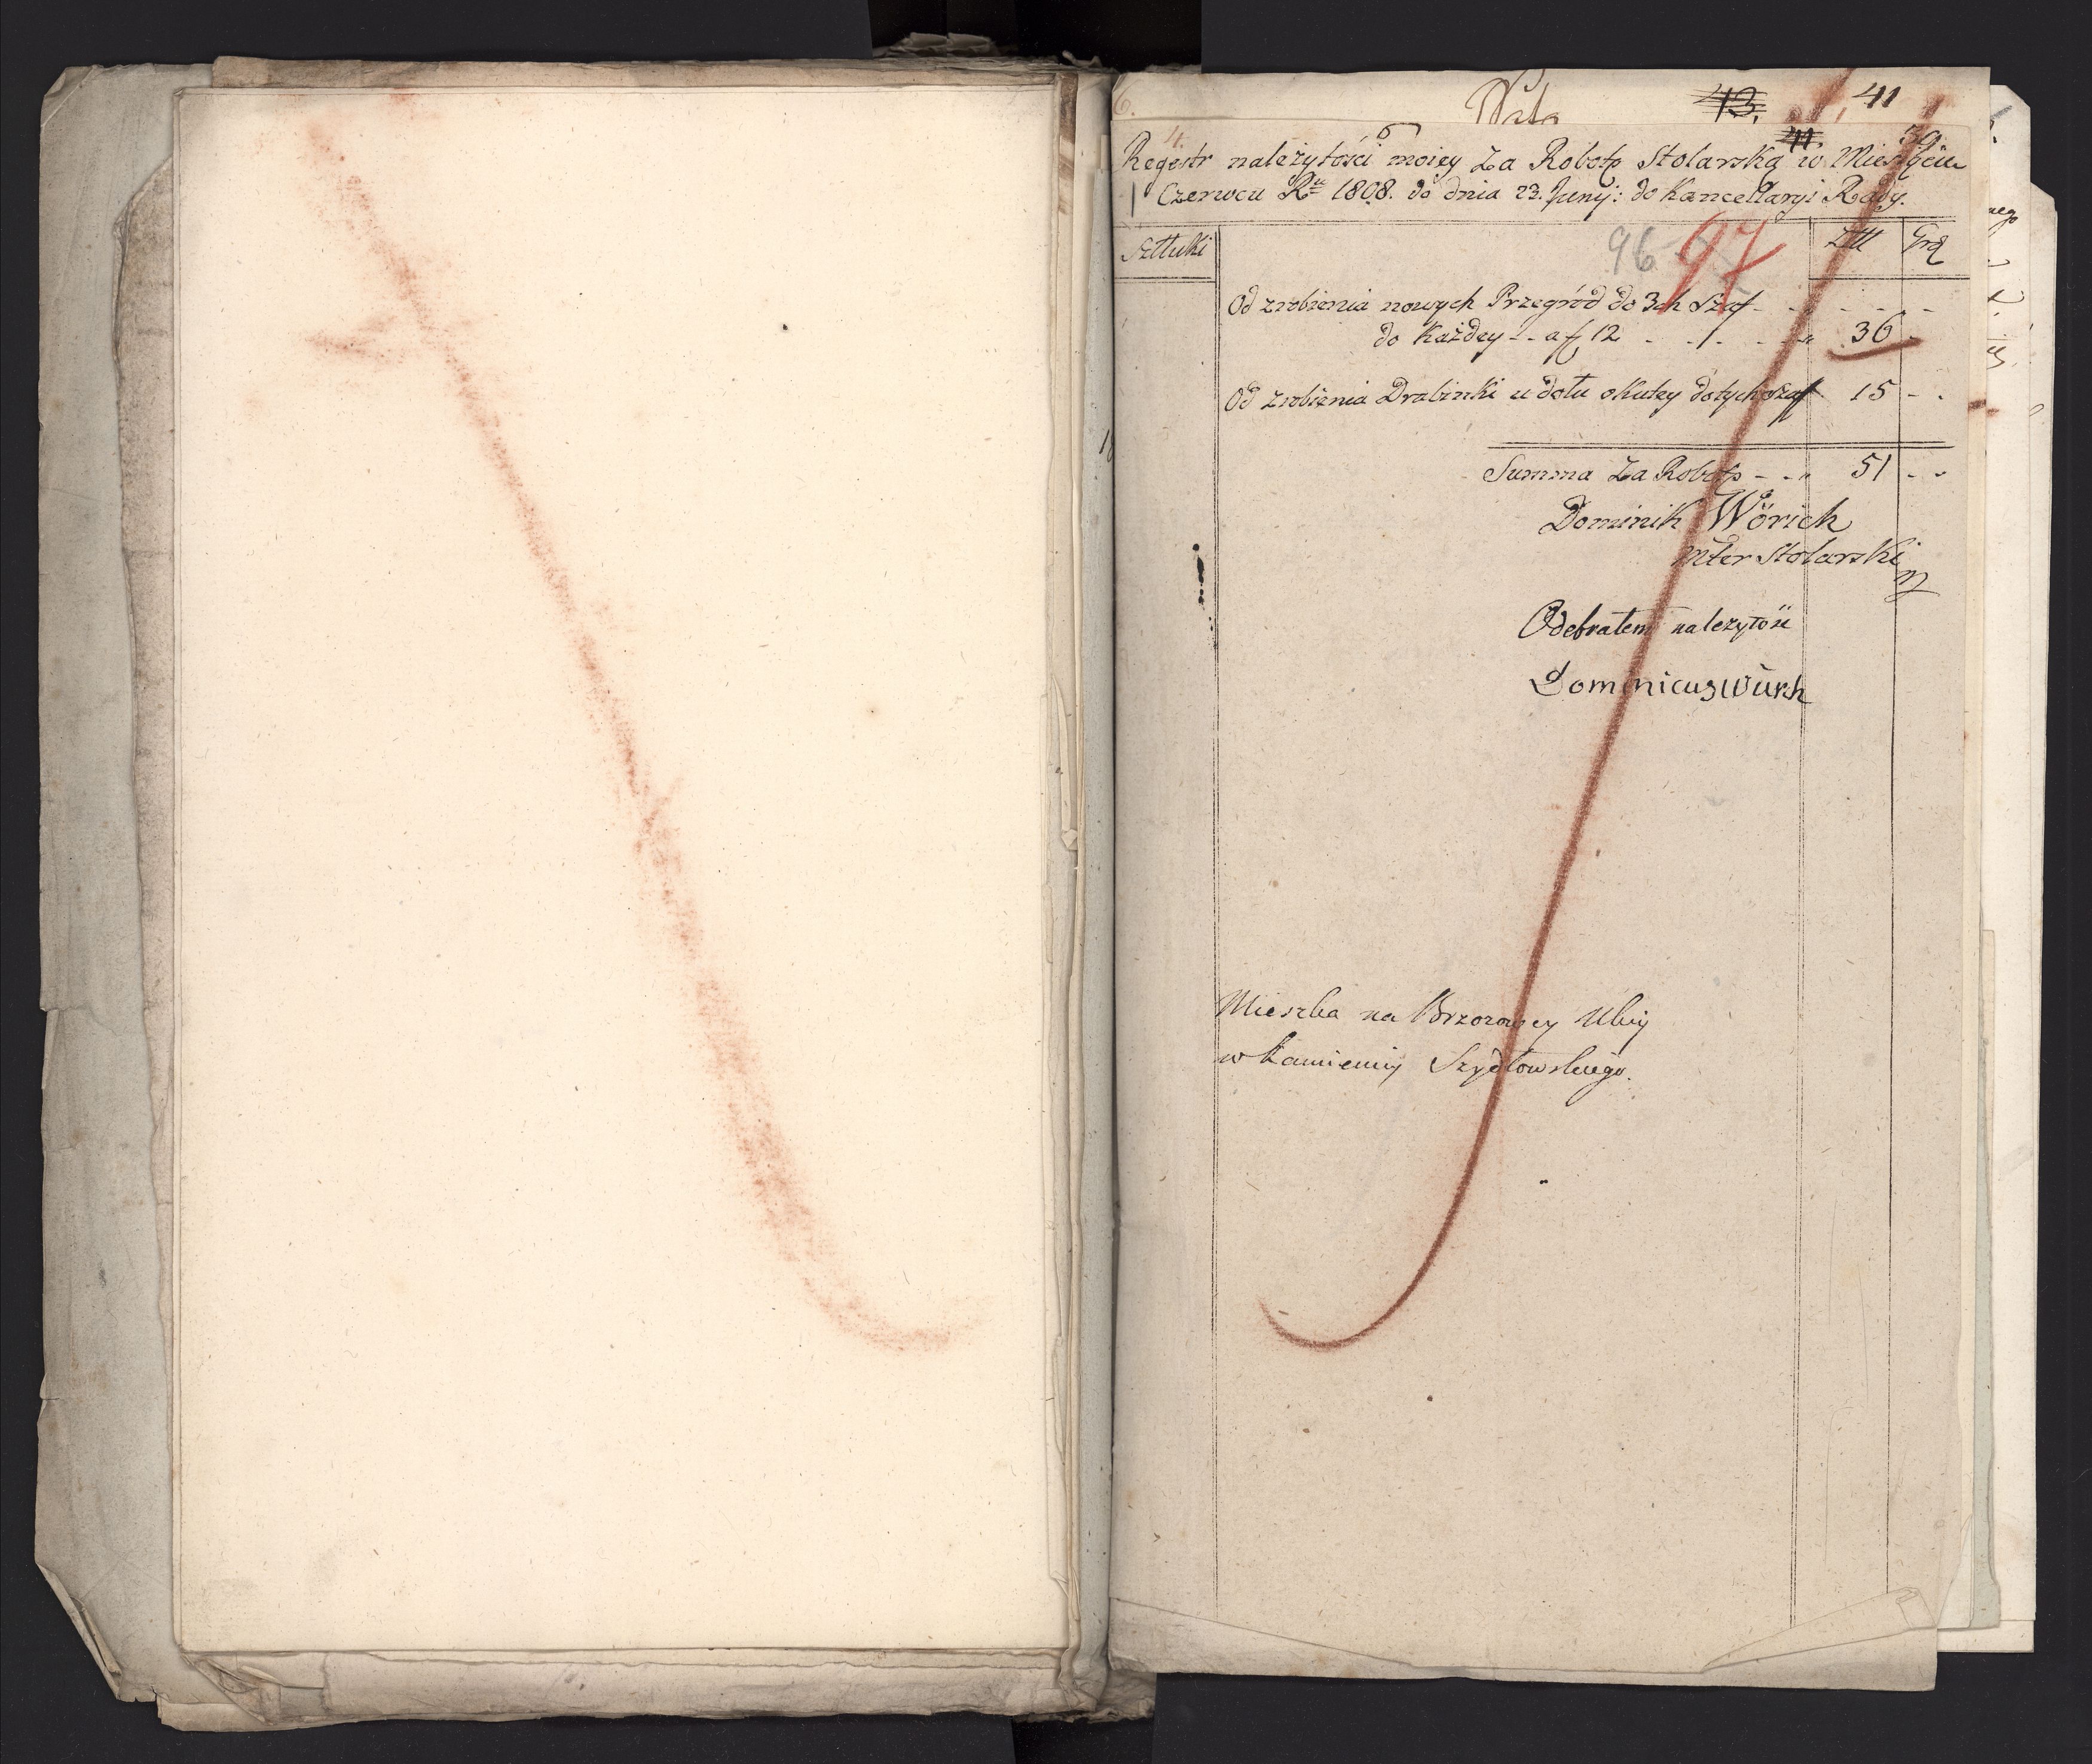 43. 41
41. 39
4.
Regestr należytości moięy za Robotę Stolarską w Miesiącu
Czerwcu Ru 1808. do dnia 23. Junij: do Kancellaryi Rady.
96 97
Sztuki Złł Grą
Od zrobienia nowych Przegród do 3ch Szaf - - - -
do każdey - - a f 12 - - - - 36 -
Od zrobienia Drabinki u dołu okutey do tych Szaf 15 - -
Summa za Robotę - - " 51 - -
Dominik Wörich
Mter Stolarski
Odebrałem należytość
Dominicus Würh
Mieszka na Brzozowey Ulicy
w kamienicy Szydłowskiego.